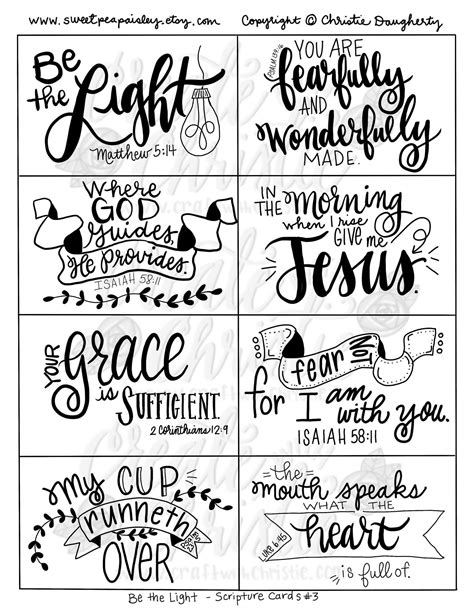 www.sweetpeapaisley.etsy.com Copyright © Christie Daugherty
Be
the Light
Matthew 5:14
YOU ARE
PSALM 139:14
fearfully
AND
Wonderfully
MADE.
Where
GOD
Guides,
He Provides.
ISAIAH 58:11
IN THE Morning
when I rise
GIVE me
Jesus.
YOUR grace
is SUFFICIENT.
2 Corinthians 12:9
fear Not
for I am
with you.
ISAIAH 58:11
my CUP
runneth
OVER
the
mouth speaks
WHAT THE
heart
LUKE 6:45
is full of.
craftwithChristie.com
Be the Light - Scripture Cards #3